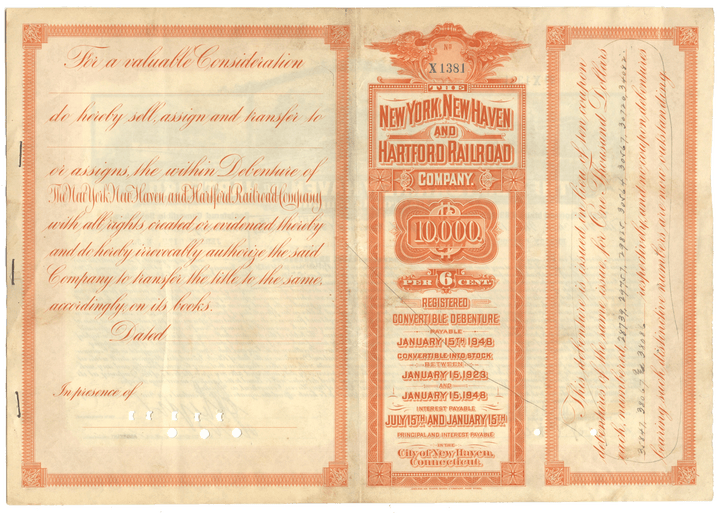 For a valuable Consideration
do hereby sell, assign and transfer to
or assigns, the within Debenture of
The New York, New Haven and Hartford Railroad Company
with all rights created or evidenced thereby
and do hereby irrevocably authorize the said
Company to transfer the title to the same,
accordingly, on its books.
Dated
In presence of
No
X1381
THE
NEW YORK, NEW HAVEN
AND
HARTFORD RAILROAD
COMPANY.
$10,000.
PER 6 CENT.
REGISTERED
CONVERTIBLE DEBENTURE
PAYABLE
JANUARY 15TH 1948
CONVERTIBLE INTO STOCK
BETWEEN
JANUARY 15, 1923,
AND
JANUARY 15, 1948
INTEREST PAYABLE
JULY 15TH AND JANUARY 15TH
PRINCIPAL AND INTEREST PAYABLE
IN THE
City of New Haven,
Connecticut.
This debenture is issued in lieu of ten coupon
debentures of the same issue, for One Thousand Dollars
each, numbered 28739, 29757, 29815,
respectively, and no correspondent debentures
bearing such numbers are now outstanding.